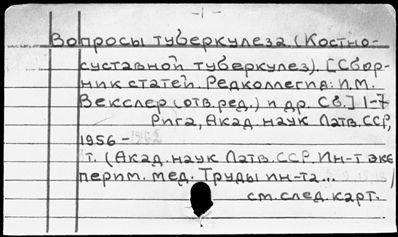 -1-
Вопросы туберкулеза. (Костно-
суставной туберкулез). [Сбор-
ник статей. Редколлегия: П.М.
Векслер (отв. ред.) и др. Сб.] 1-7
Рига, Акад. наук Латв. ССР,
1956 -
т. (Акад. наук Латв. ССР. Ин-т экс
перим. мед. Труды ин-та...
см. след. карт.